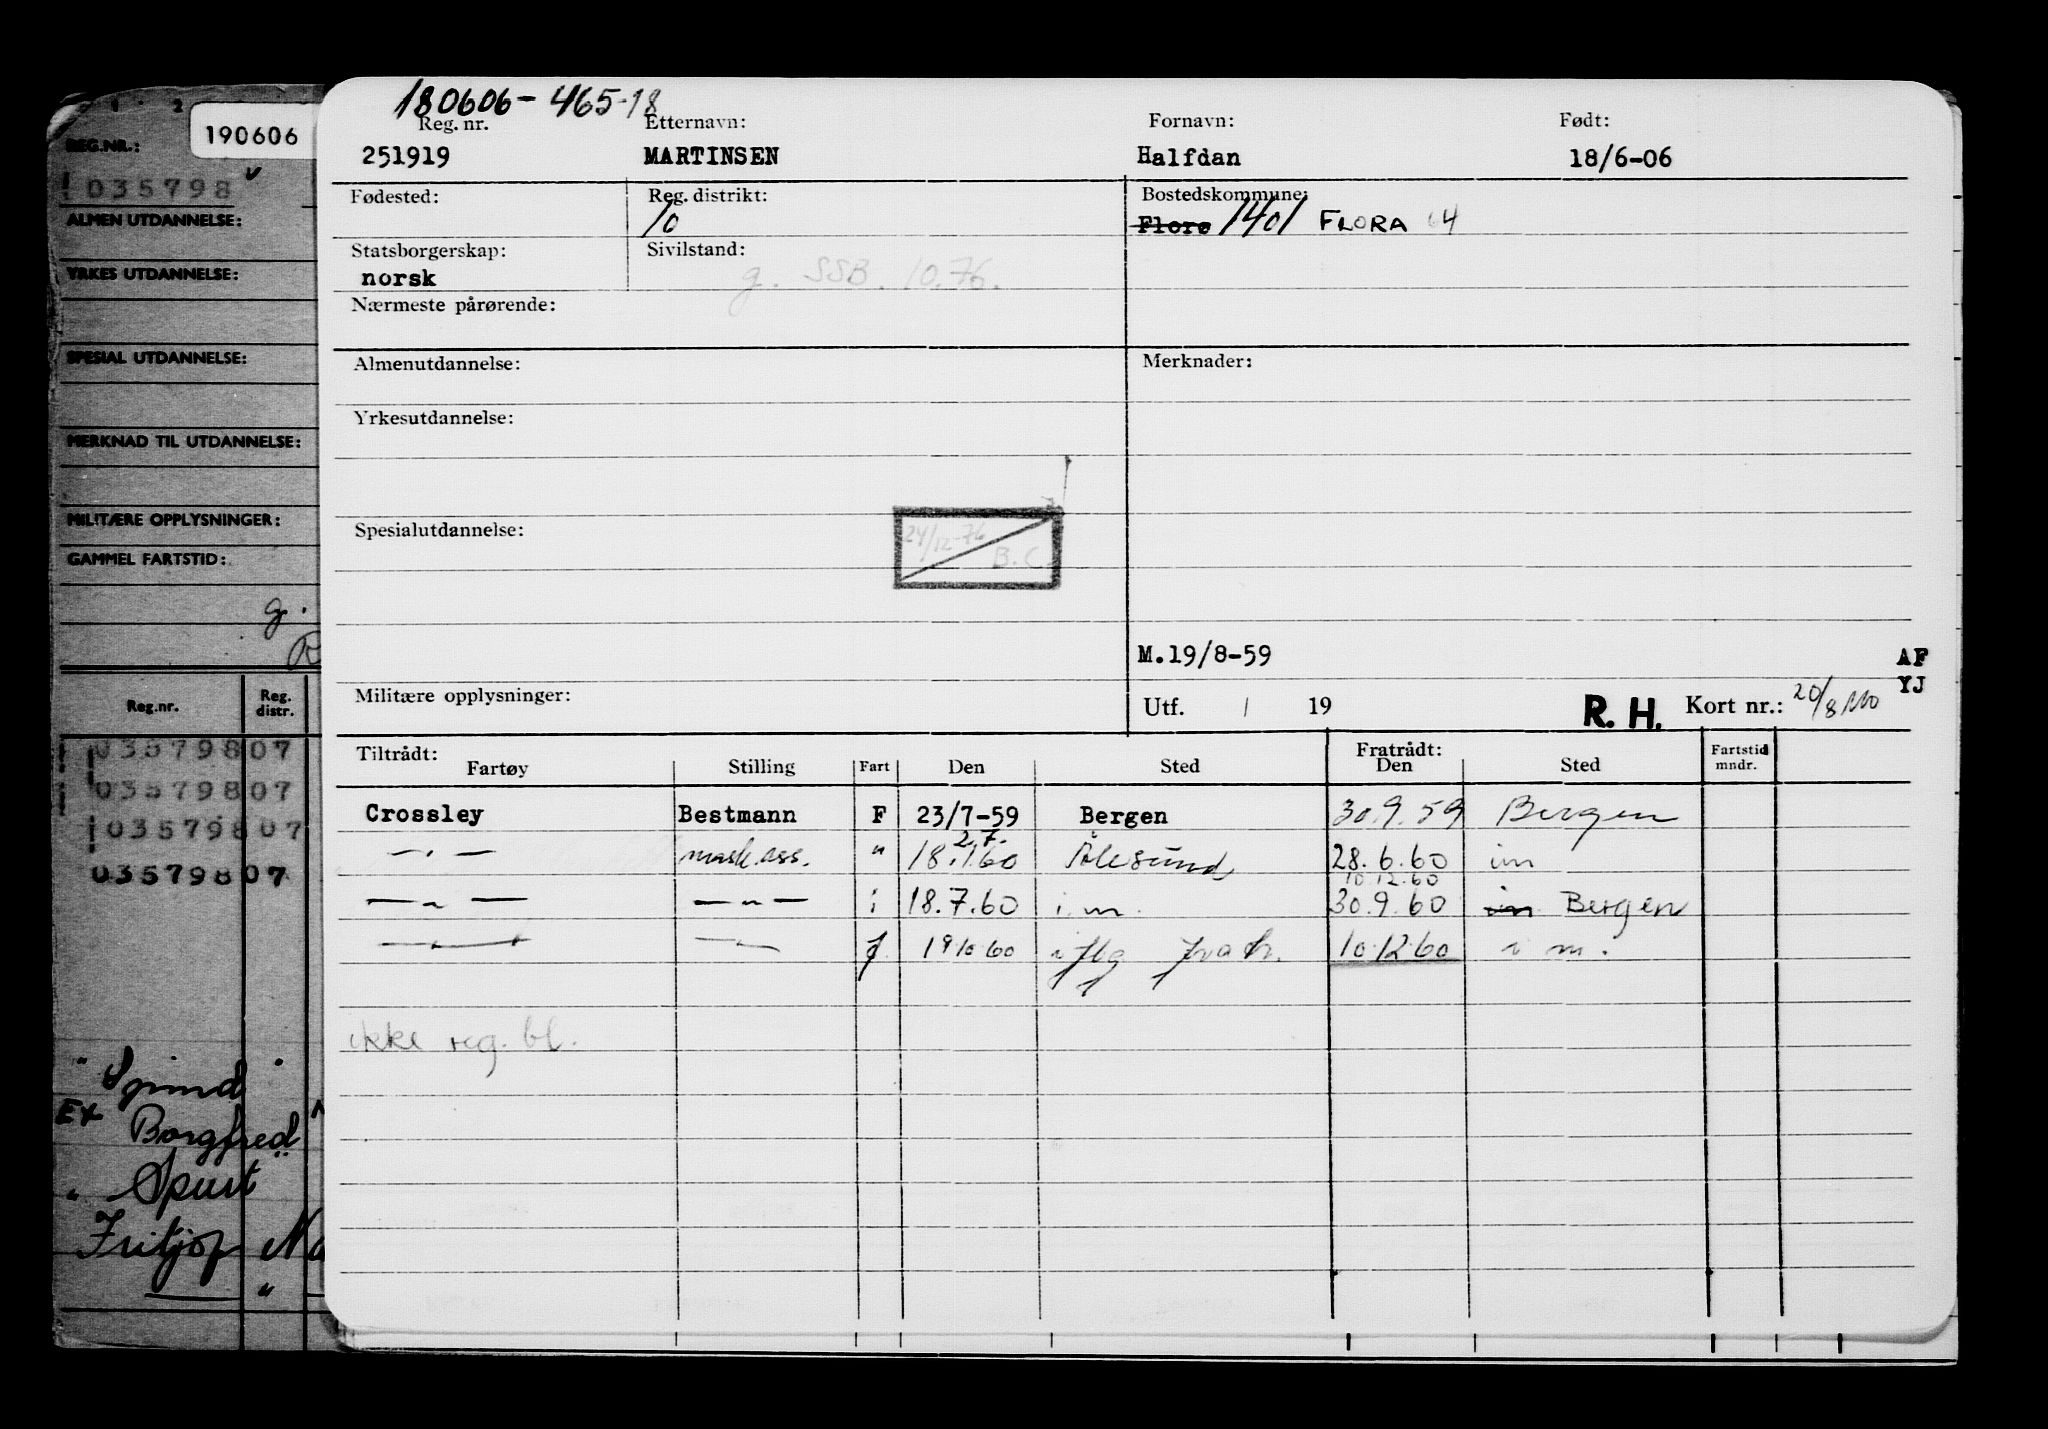 180606-465-18
Reg. nr. Etternavn: Fornavn: Født:
251919 MARTINSEN Halfdan 18/6-06
Fødested: Reg. distrikt: Bostedskommune:
10 Florø 1401 FLORA 64
Statsborgerskap: Sivilstand:
norsk g. SSB. 10.76.
Nærmeste pårørende:
Almenutdannelse: Merknader:
Yrkesutdannelse:
Spesialutdannelse: 24/12-76 B.C.
M.19/8-59 AF
YJ
Militære opplysninger: Utf. / 19 R. H. Kort nr.: 20/8
Tiltrådt: Fratrådt:
Fartøy Stilling Fart Den Sted Den Sted Fartstid mndr.
Crossley Bestmann F 23/7-59 Bergen 30.9.59 Bergen
2.7.
— " — mask.ass. " 18.1.60 Ålesund 28.6.60 im
10.12.60
— " — — " — i 18.7.60 i.m. 30.9.60 im Bergen
— " — — " — f 19 10 60 10.12.60 i m.
ikke reg. bl.
190606
REG.NR.:
035798
ALMEN UTDANNELSE:
YRKES UTDANNELSE:
SPESIAL UTDANNELSE:
MERKNAD TIL UTDANNELSE:
MILITÆRE OPPLYSNINGER:
GAMMEL FARTSTID:
g.
R
Reg.nr. Reg. distr.
03579807
03579807
03579807
03579807
" Spind "
Ex Borgfred
" Spurt
Fritjof
"